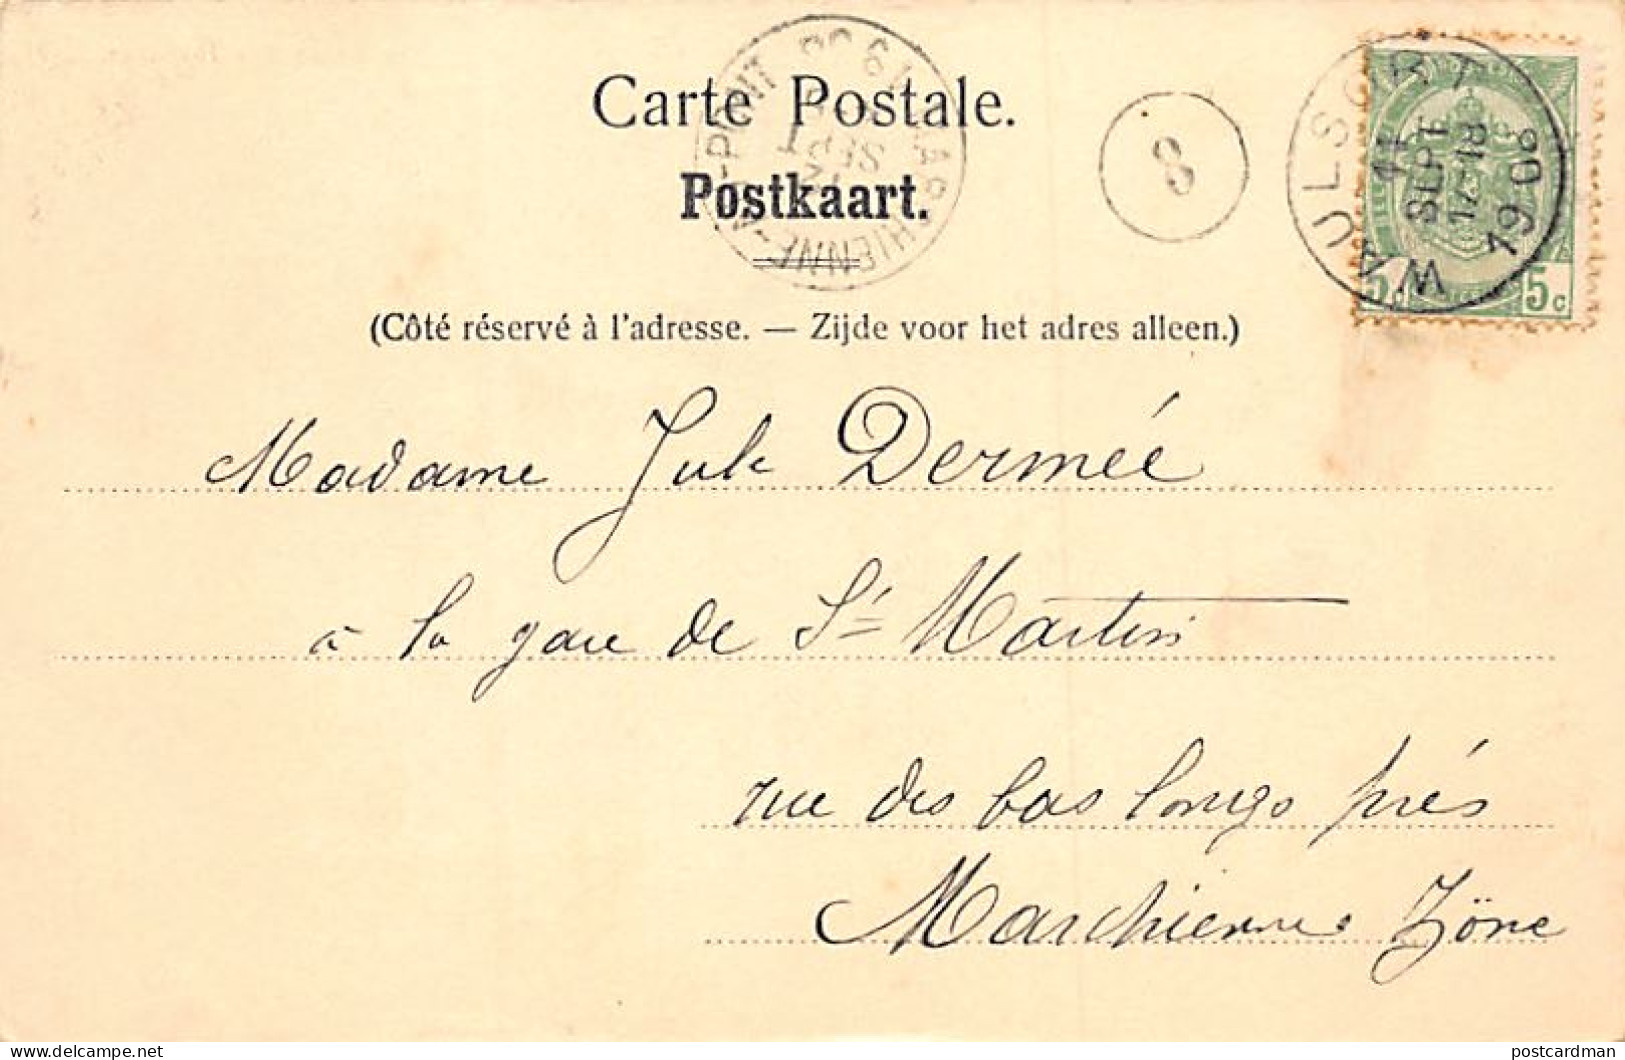 Carte Postale.
Postkaart.
(Côté réservé à l'adresse. — Zijde voor het adres alleen.)
MARCHIENNE-AU-PONT
SEPT
8
WAULSORT
11
SEPT
17-18
1908
5c
5c
Madame Jule Dermée
à la gare de St Martin
rue des bas longs prés
Marchienne Zône
postcardman